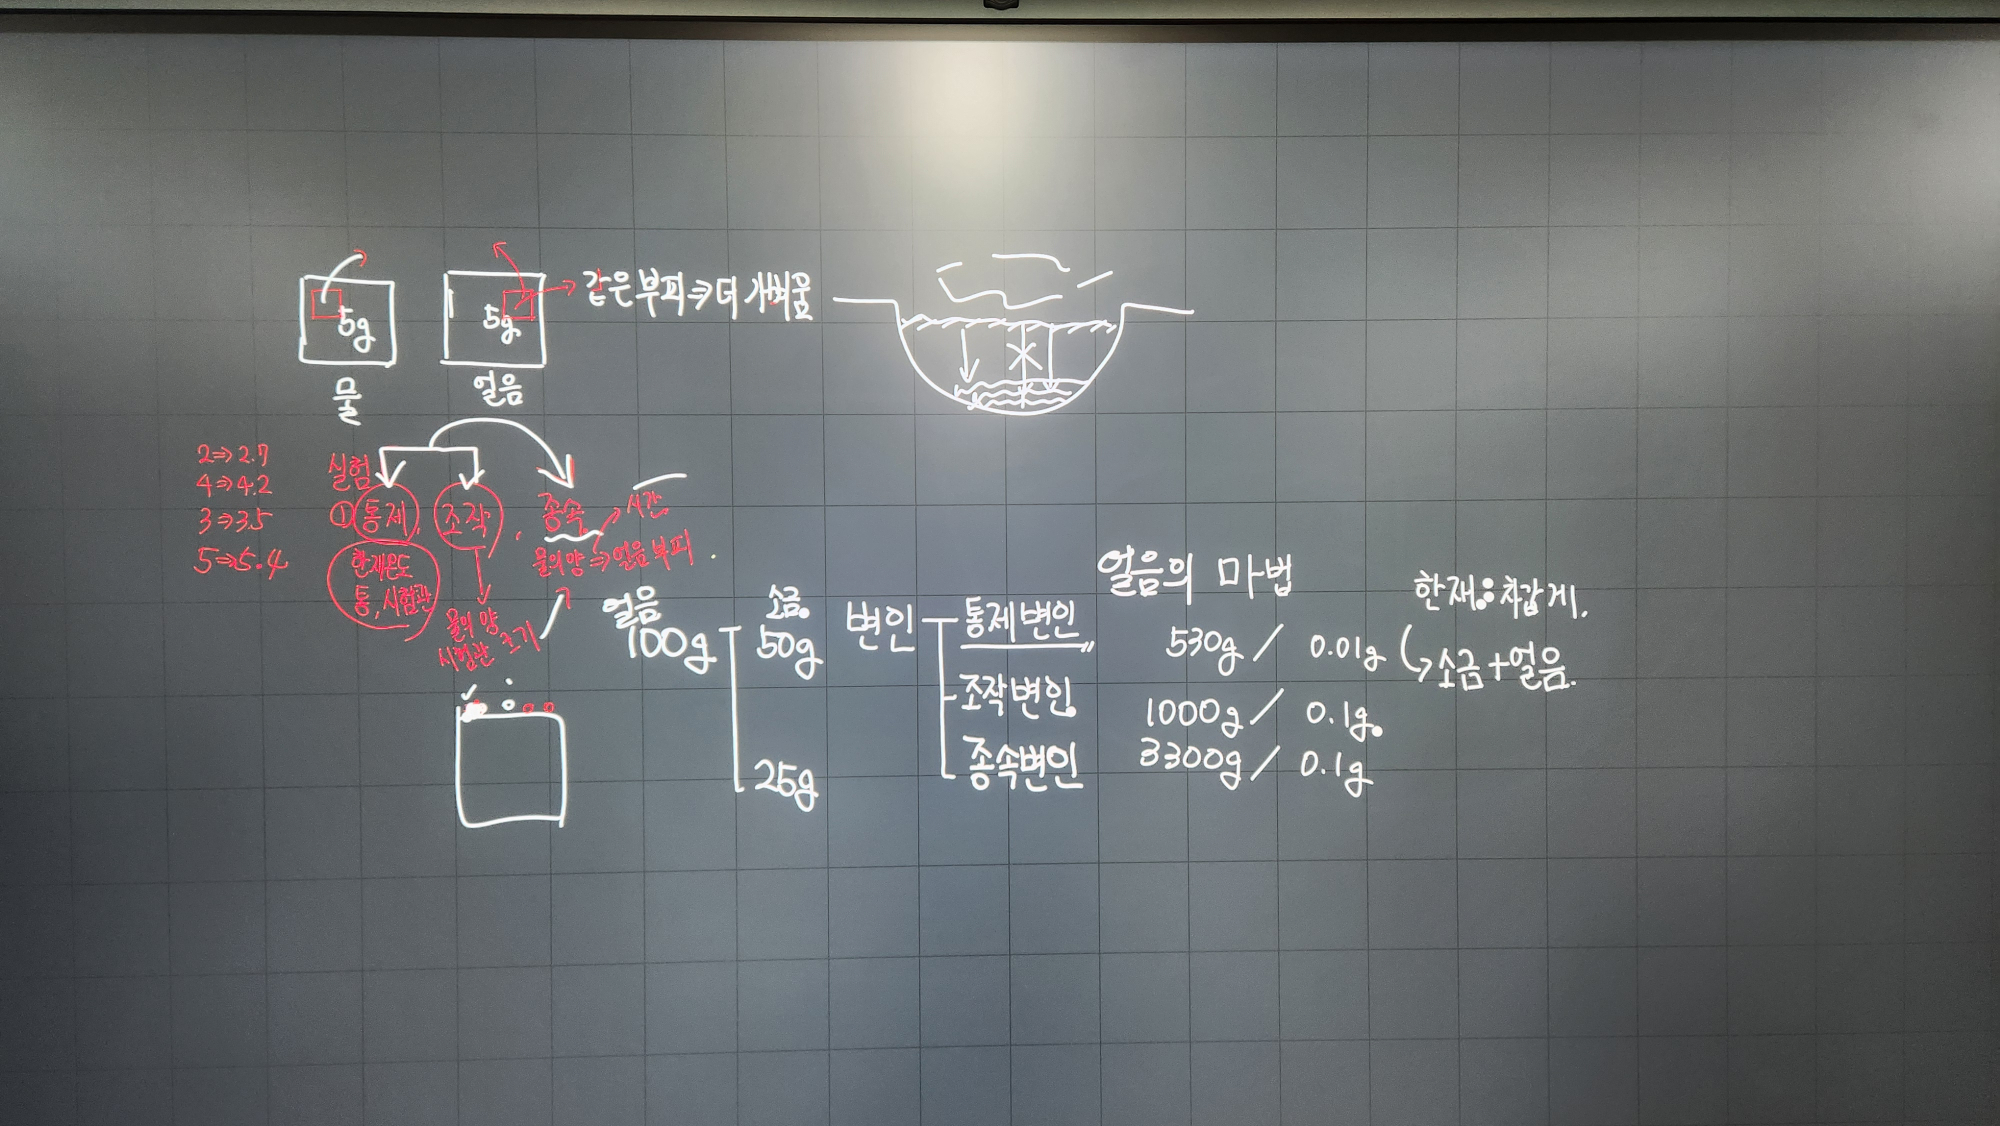 5g
물
5g
얼음
같은 부피⇒더 개벼움
2⇒2.7
4⇒4.2
3⇒3.5
5⇒5.4
실험
① 통제, 조작, 종속 → 시간
한재온도
통, 시험관
물의 양
시험관 크기
물의 양 ⇒ 얼음 부피
얼음
100g
소금
50g
25g
변인
통제변인
조작변인
종속변인
얼음의 마법
530g / 0.01g
1000g / 0.1g
3300g / 0.1g
한재: 차갑게.
↳소금+얼음.